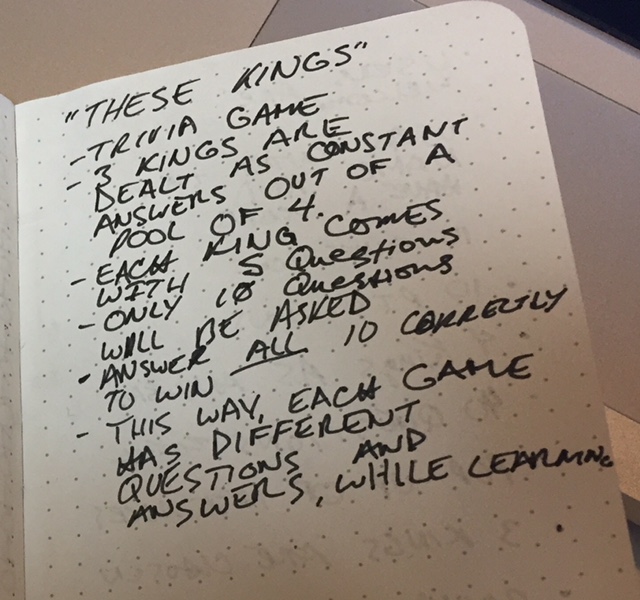 "THESE KINGS"
- TRIVIA GAME
- 3 KINGS ARE
DEALT AS CONSTANT
ANSWERS OUT OF A
POOL OF 4.
- EACH KING COMES
WITH 5 Questions
- ONLY 10 Questions
WILL BE ASKED
- ANSWER ALL 10 CORRECTLY
TO WIN
- THIS WAY, EACH GAME
HAS DIFFERENT
QUESTIONS AND
ANSWERS, WHILE LEARNING